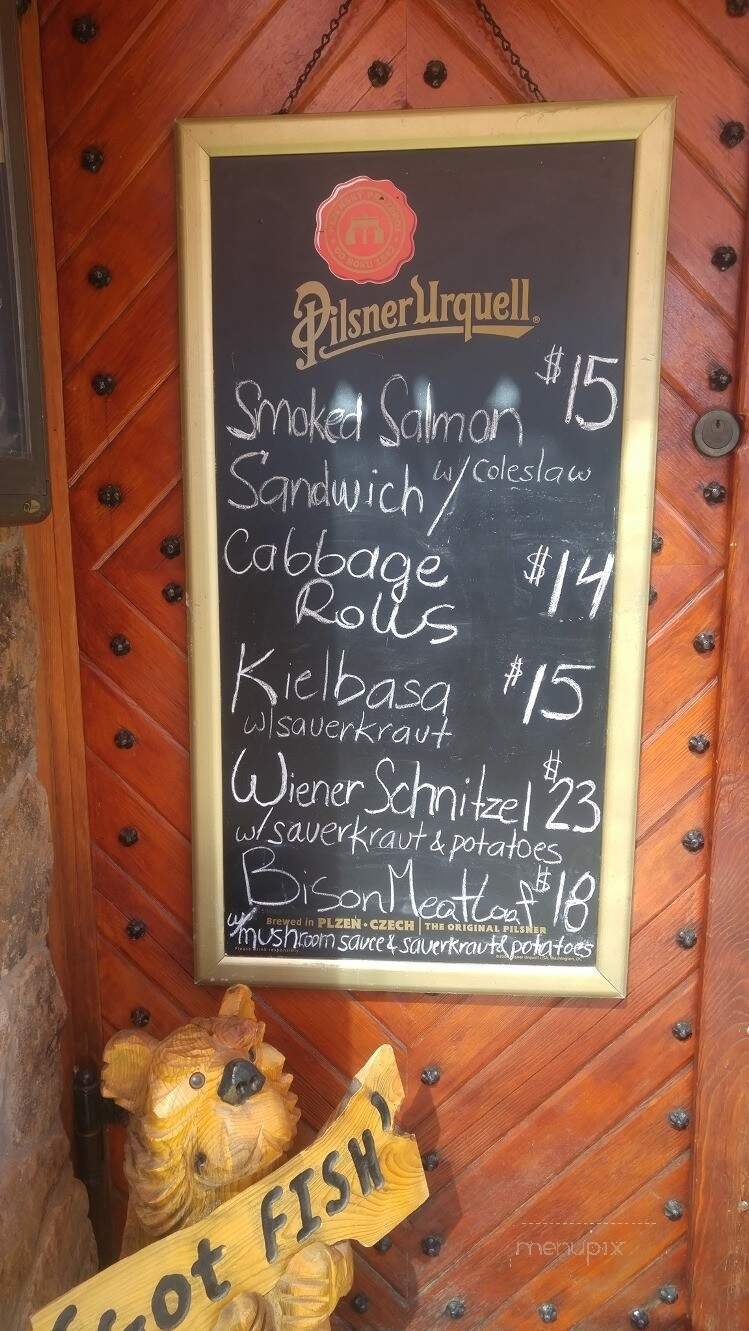 Pilsner Urquell®
Smoked Salmon $15
Sandwich w/ coleslaw
Cabbage $14
Rolls
Kielbasa $15
w/sauerkraut
Wiener Schnitzel $23
w/sauerkraut & potatoes
Bison Meatloaf $18
Brewed in PLZEN · CZECH | THE ORIGINAL PILSNER
w/ mushroom sauce & sauerkraut & potatoes
Got FISH'
menupix